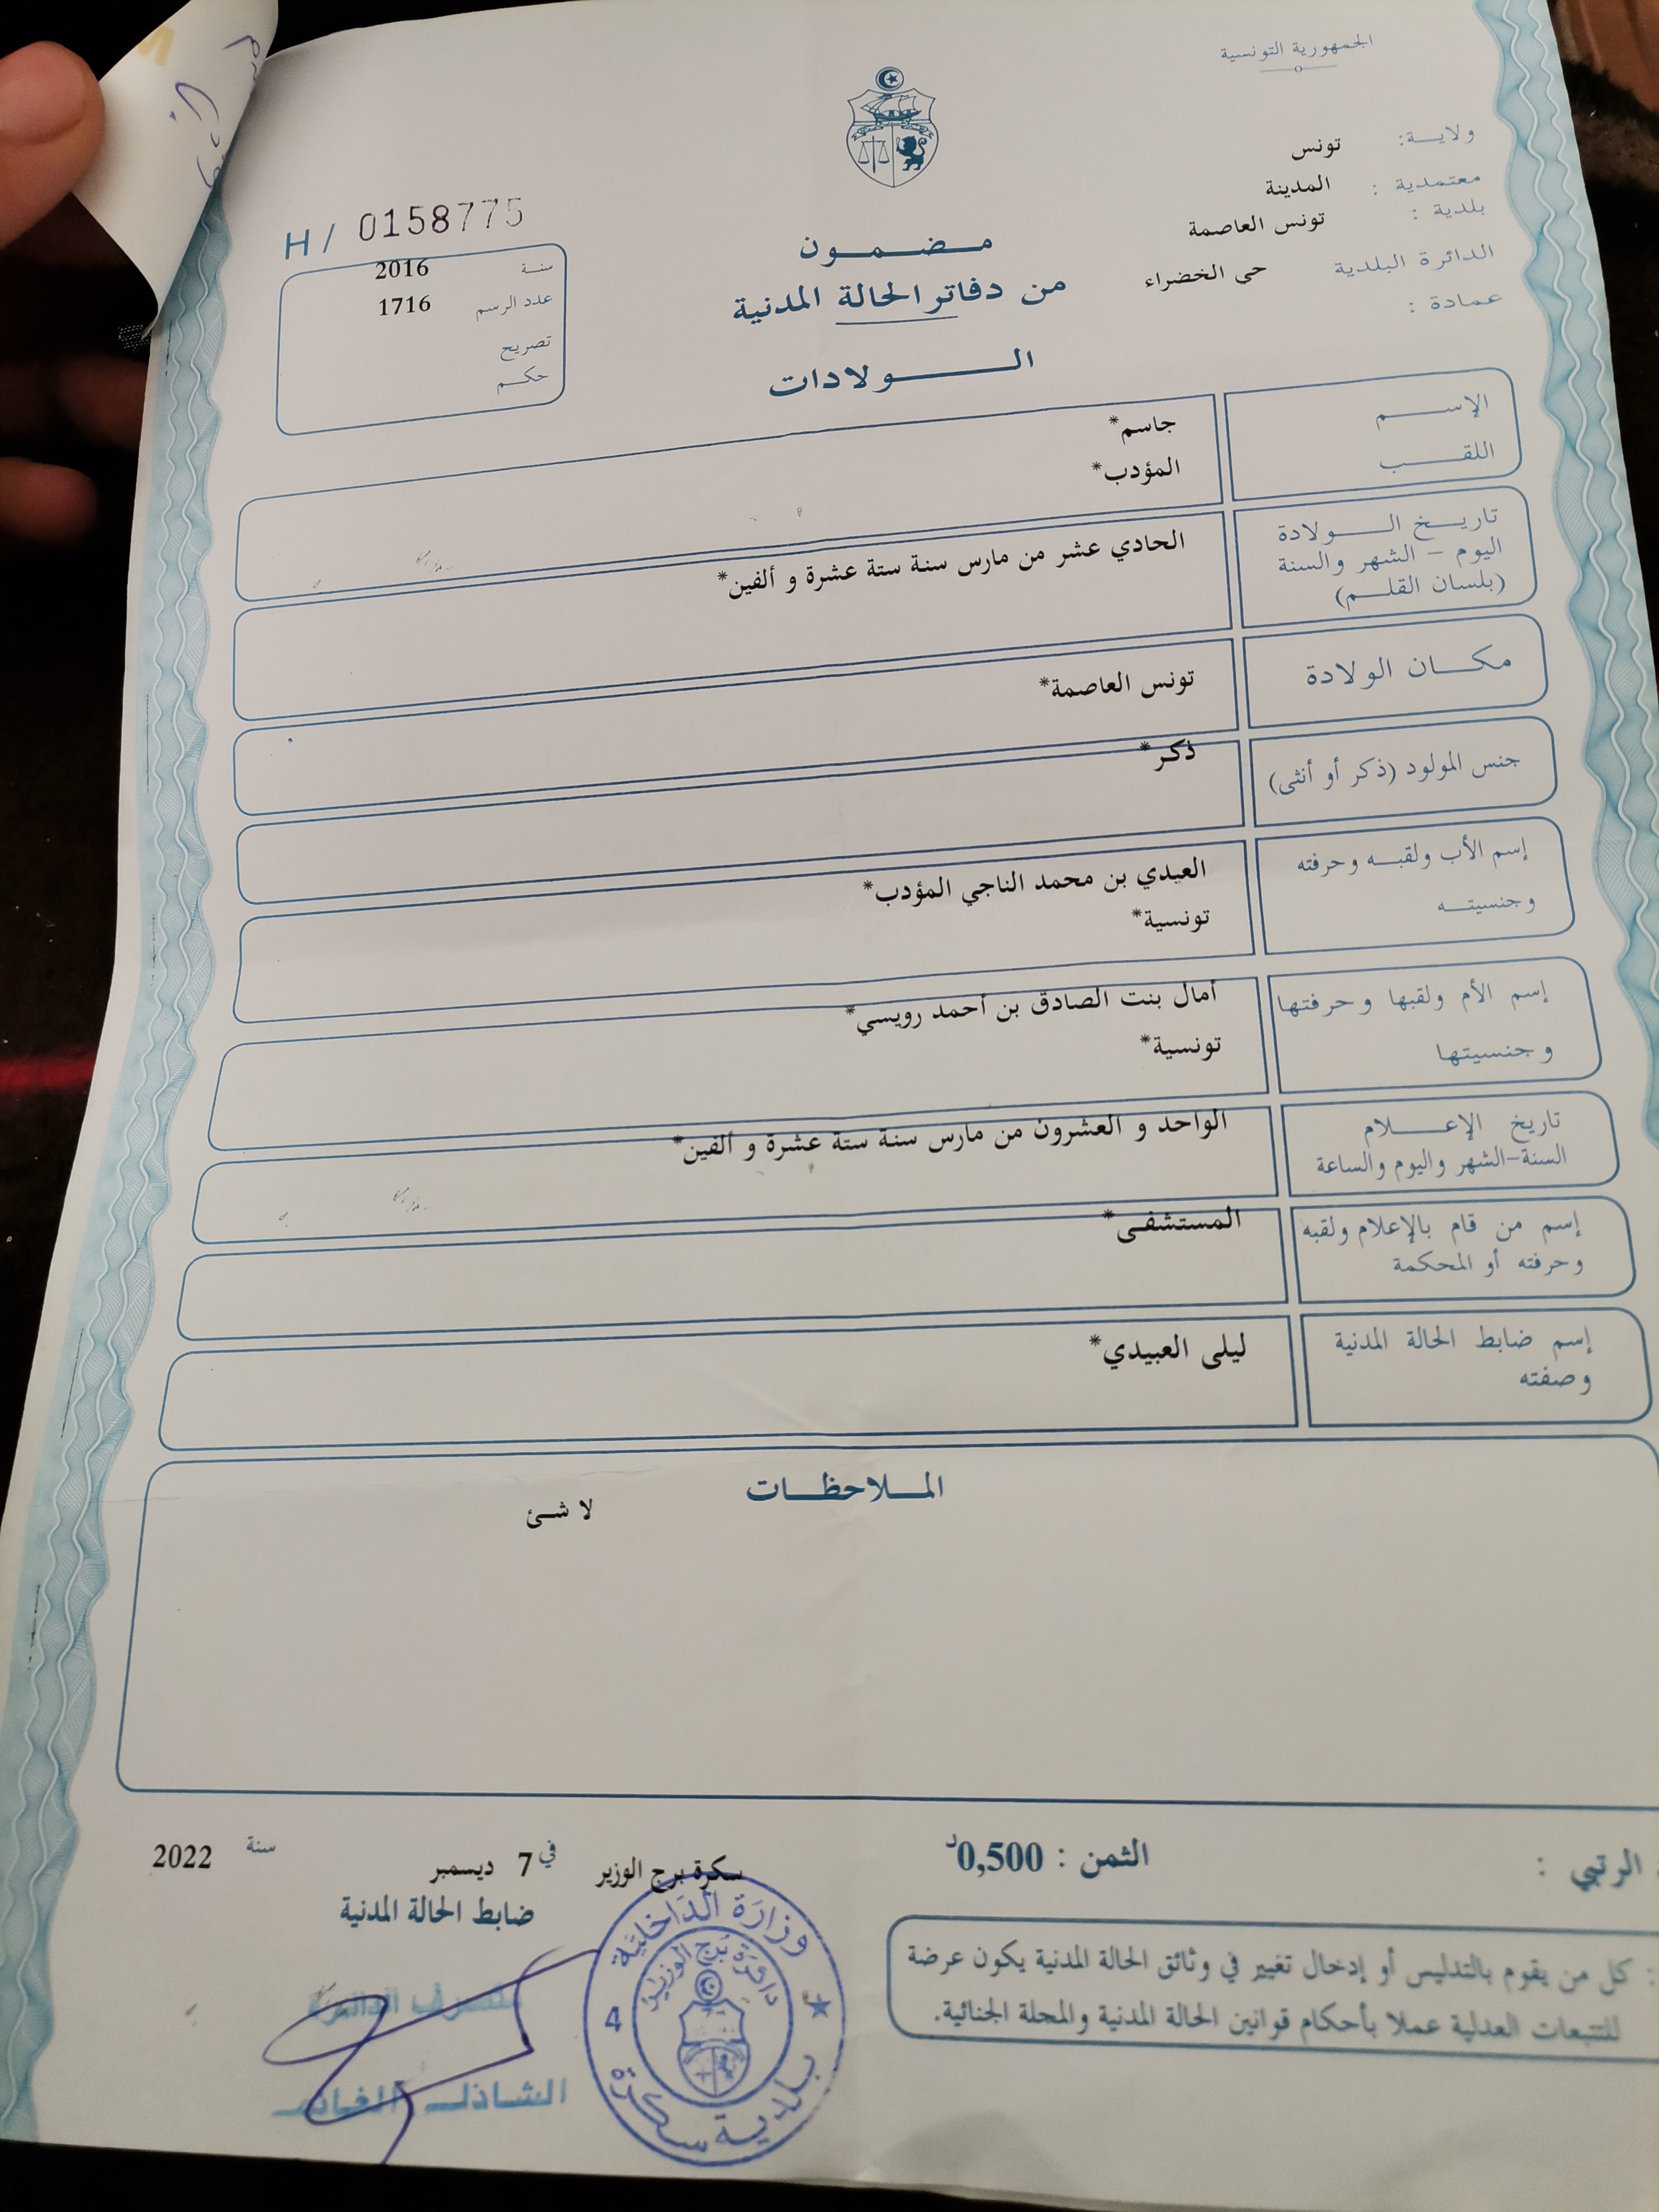 الجمهورية التونسية
ولاية: تونس
معتمدية : المدينة
بلدية : تونس العاصمة
الدائرة البلدية حى الخضراء
عمادة :
H / 0158775
سنة 2016
عدد الرسم 1716
تصريح
حكم
مضمون
من دفاتر الحالة المدنية
الولادات
الإسم جاسم*
اللقب المؤدب*
تاريخ الولادة
اليوم – الشهر والسنة
(بلسان القلم)
الحادي عشر من مارس سنة ستة عشرة و ألفين*
مكان الولادة تونس العاصمة*
جنس المولود (ذكر أو أنثى) ذكر*
إسم الأب ولقبه وحرفته العيدي بن محمد الناجي المؤدب*
وجنسيته تونسية*
إسم الأم ولقبها وحرفتها أمال بنت الصادق بن أحمد رويسي*
وجنسيتها تونسية*
تاريخ الإعلام
السنة-الشهر واليوم والساعة
الواحد و العشرون من مارس سنة ستة عشرة و ألفين*
إسم من قام بالإعلام ولقبه
وحرفته أو المحكمة
المستشفى*
إسم ضابط الحالة المدنية
وصفته
ليلى العبيدي*
الملاحظات
لا شئ
الرتبي :
الثمن : 0,500د
سكرة برج الوزير في 7 ديسمبر سنة 2022
ضابط الحالة المدنية
: كل من يقوم بالتدليس أو إدخال تغيير في وثائق الحالة المدنية يكون عرضة
للتتبعات العدلية عملا بأحكام قوانين الحالة المدنية والمجلة الجنائية.
وزارة الداخلية
دائرة برج الوزير
4
بلدية سكرة
الشاذلي